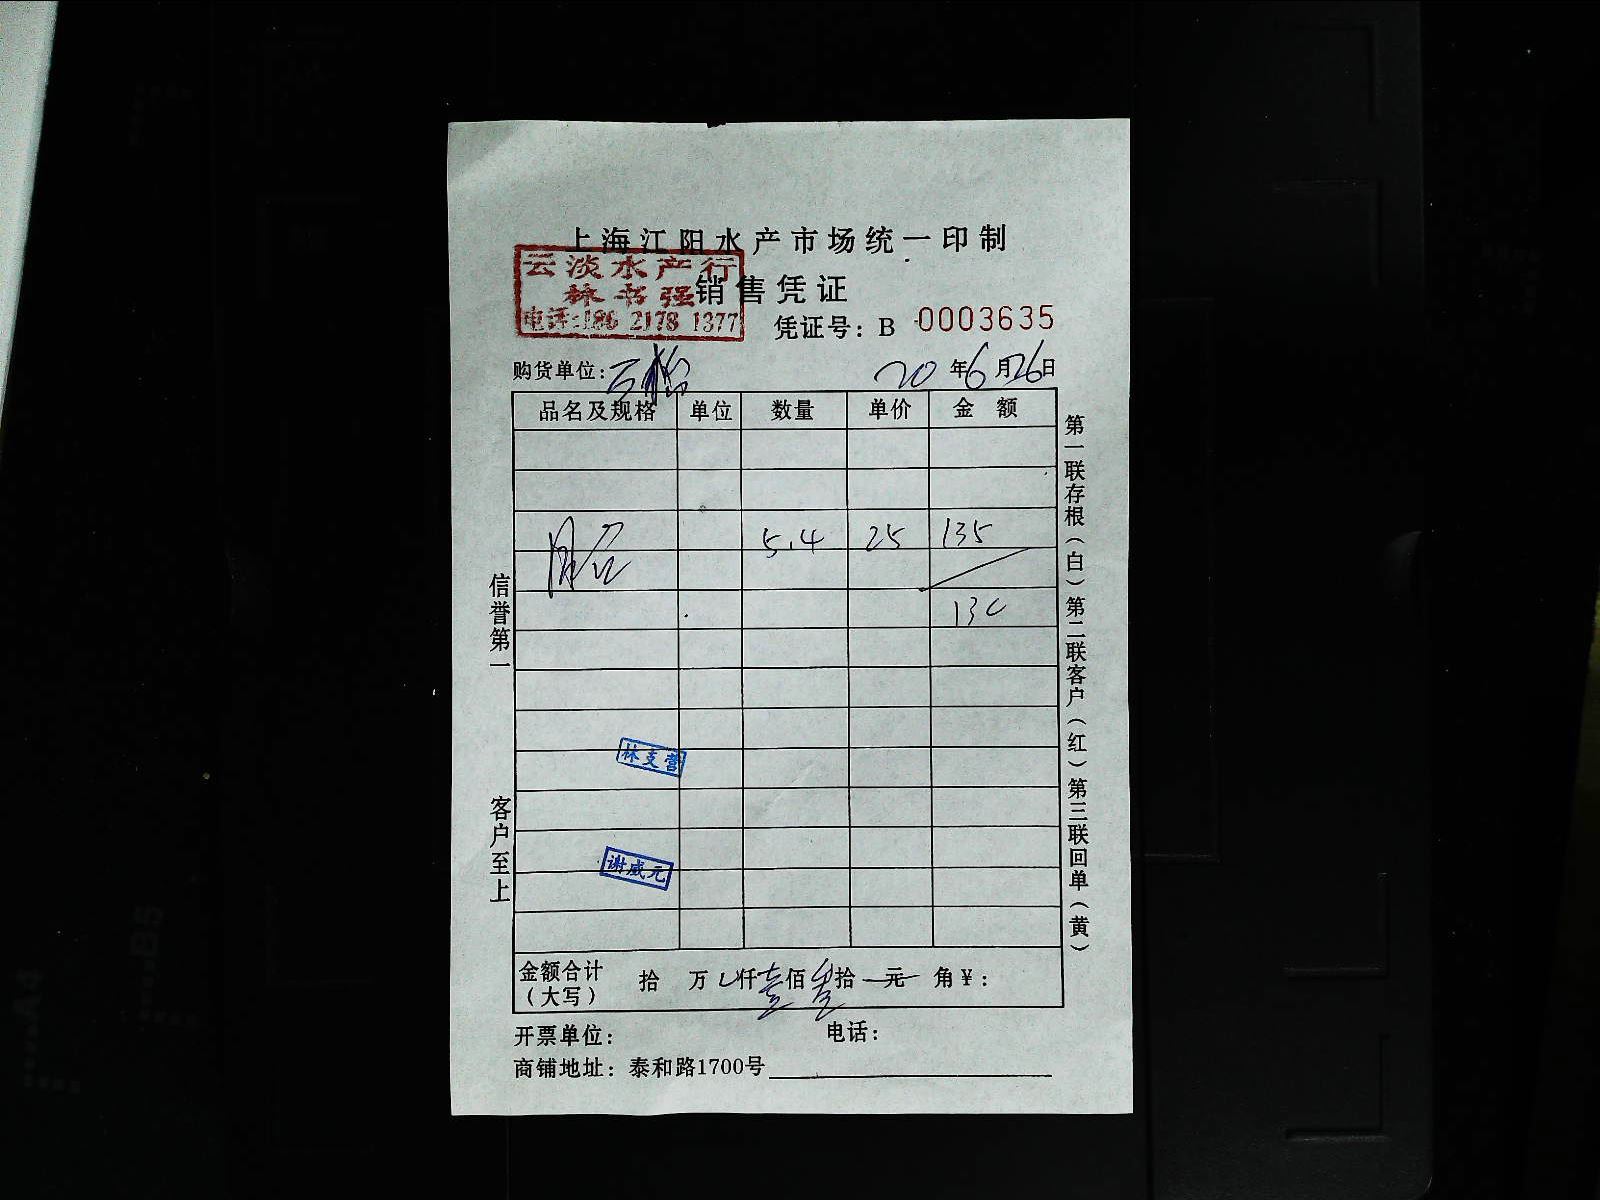 上海江阳水产市场统一印制
云淡水产行
林书强
电话:186 2178 1377
销售凭证
凭证号：B 0003635
购货单位:
20年6月26日
品名及规格 单位 数量 单价 金额
5.4 25 135
130
林支营
谢威元
金额合计（大写） 拾 万 仟壹佰叁拾元 角¥：
开票单位：
电话：
商铺地址：泰和路1700号
信誉第一
客户至上
第一联存根（白）第二联客户（红）第三联回单（黄）